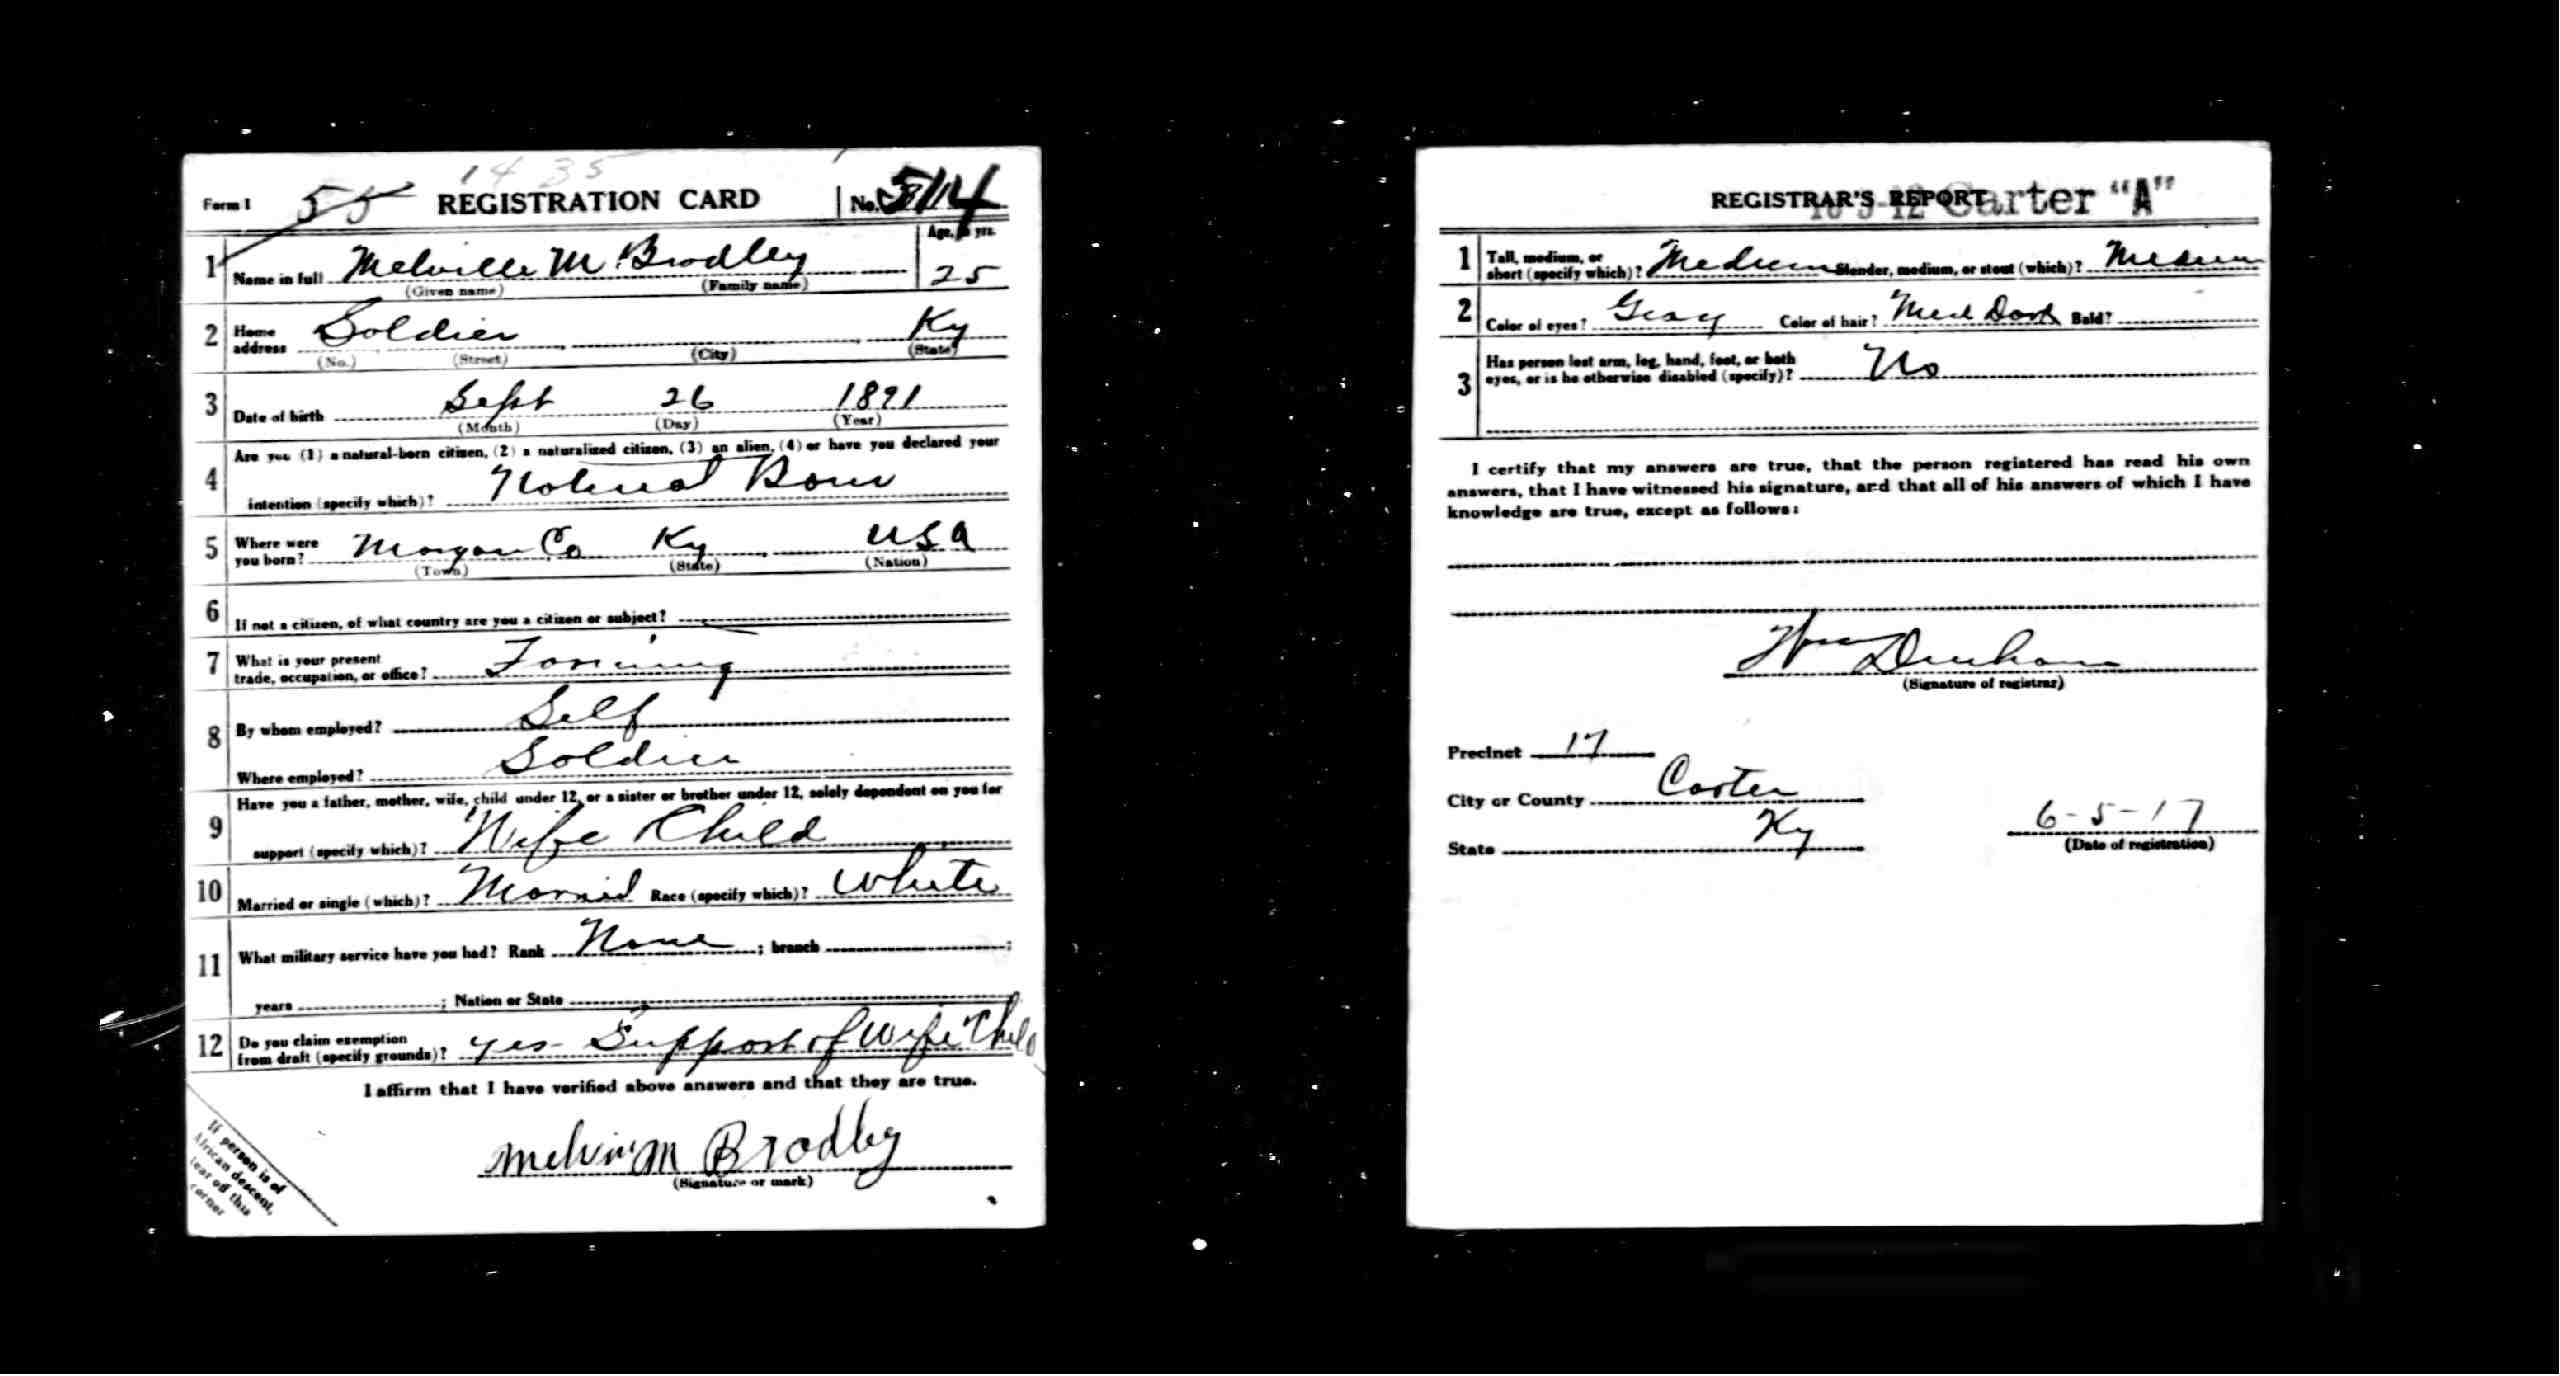 1435
Form 1 55 REGISTRATION CARD No. 514
1 Name in full Melville M Bradley Age, in yrs. 25
(Given name) (Family name)
2 Home address Soldier Ky
(No.) (Street) (City) (State)
3 Date of birth Sept 26 1891
(Month) (Day) (Year)
4 Are you (1) a natural-born citizen, (2) a naturalized citizen, (3) an alien, (4) or have you declared your
intention (specify which)? Natural Born
5 Where were you born? Morgan Co Ky USA
(Town) (State) (Nation)
6 If not a citizen, of what country are you a citizen or subject?
7 What is your present
trade, occupation, or office? Farming
8 By whom employed? Self
Where employed? Soldier
9 Have you a father, mother, wife, child under 12, or a sister or brother under 12, solely dependent on you for
support (specify which)? Wife Child
10 Married or single (which)? Married Race (specify which)? White
11 What military service have you had? Rank None ; branch ;
years ; Nation or State
12 Do you claim exemption
from draft (specify grounds)? yes - Support of Wife Child
I affirm that I have verified above answers and that they are true.
Melvin M Bradley
(Signature or mark)
If person is of
African descent,
tear off this
corner
REGISTRAR'S REPORT Carter "A"
1 Tall, medium, or
short (specify which)? Medium Slender, medium, or stout (which)? Medium
2 Color of eyes? Gray Color of hair? Med Dark Bald?
3 Has person lost arm, leg, hand, foot, or both
eyes, or is he otherwise disabled (specify)? No
I certify that my answers are true, that the person registered has read his own
answers, that I have witnessed his signature, and that all of his answers of which I have
knowledge are true, except as follows:
Wm Durham
(Signature of registrar)
Precinct 17
City or County Carter
State Ky 6-5-17
(Date of registration)